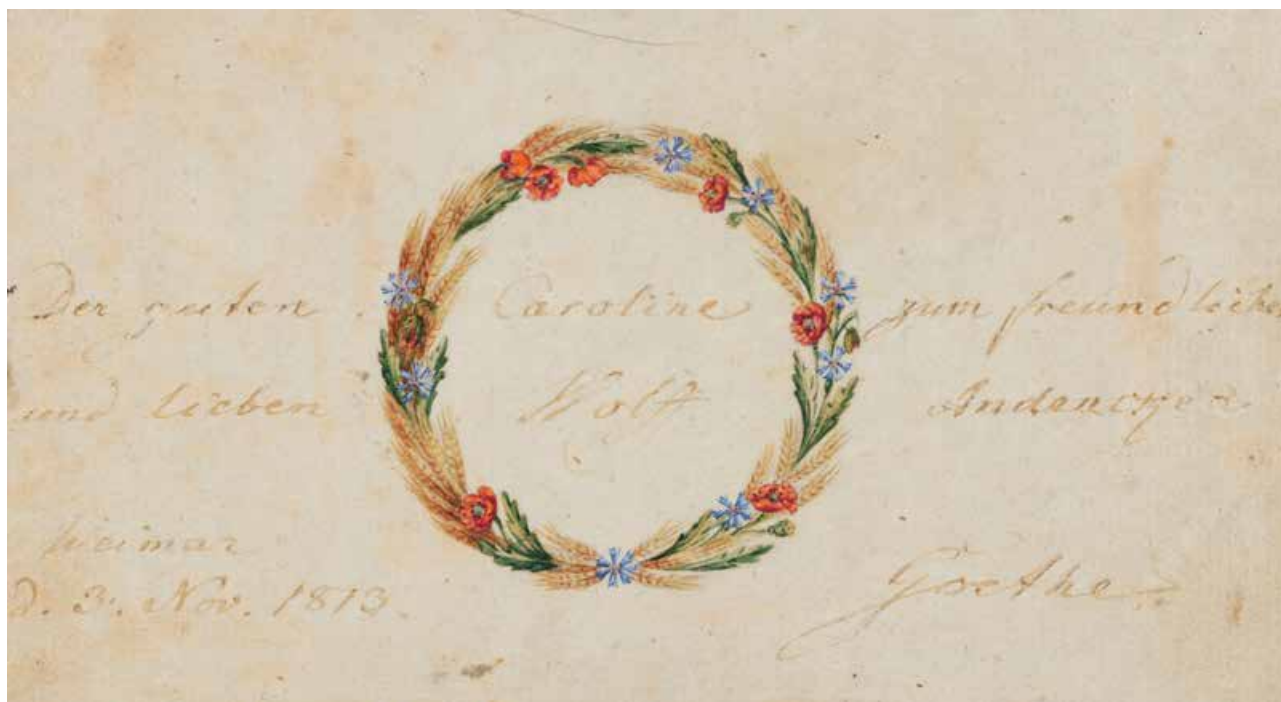 Der guten Caroline zum freundliche
und lieben Wolff Andencken
Weimar
d. 3. Nov. 1813.
Goethe